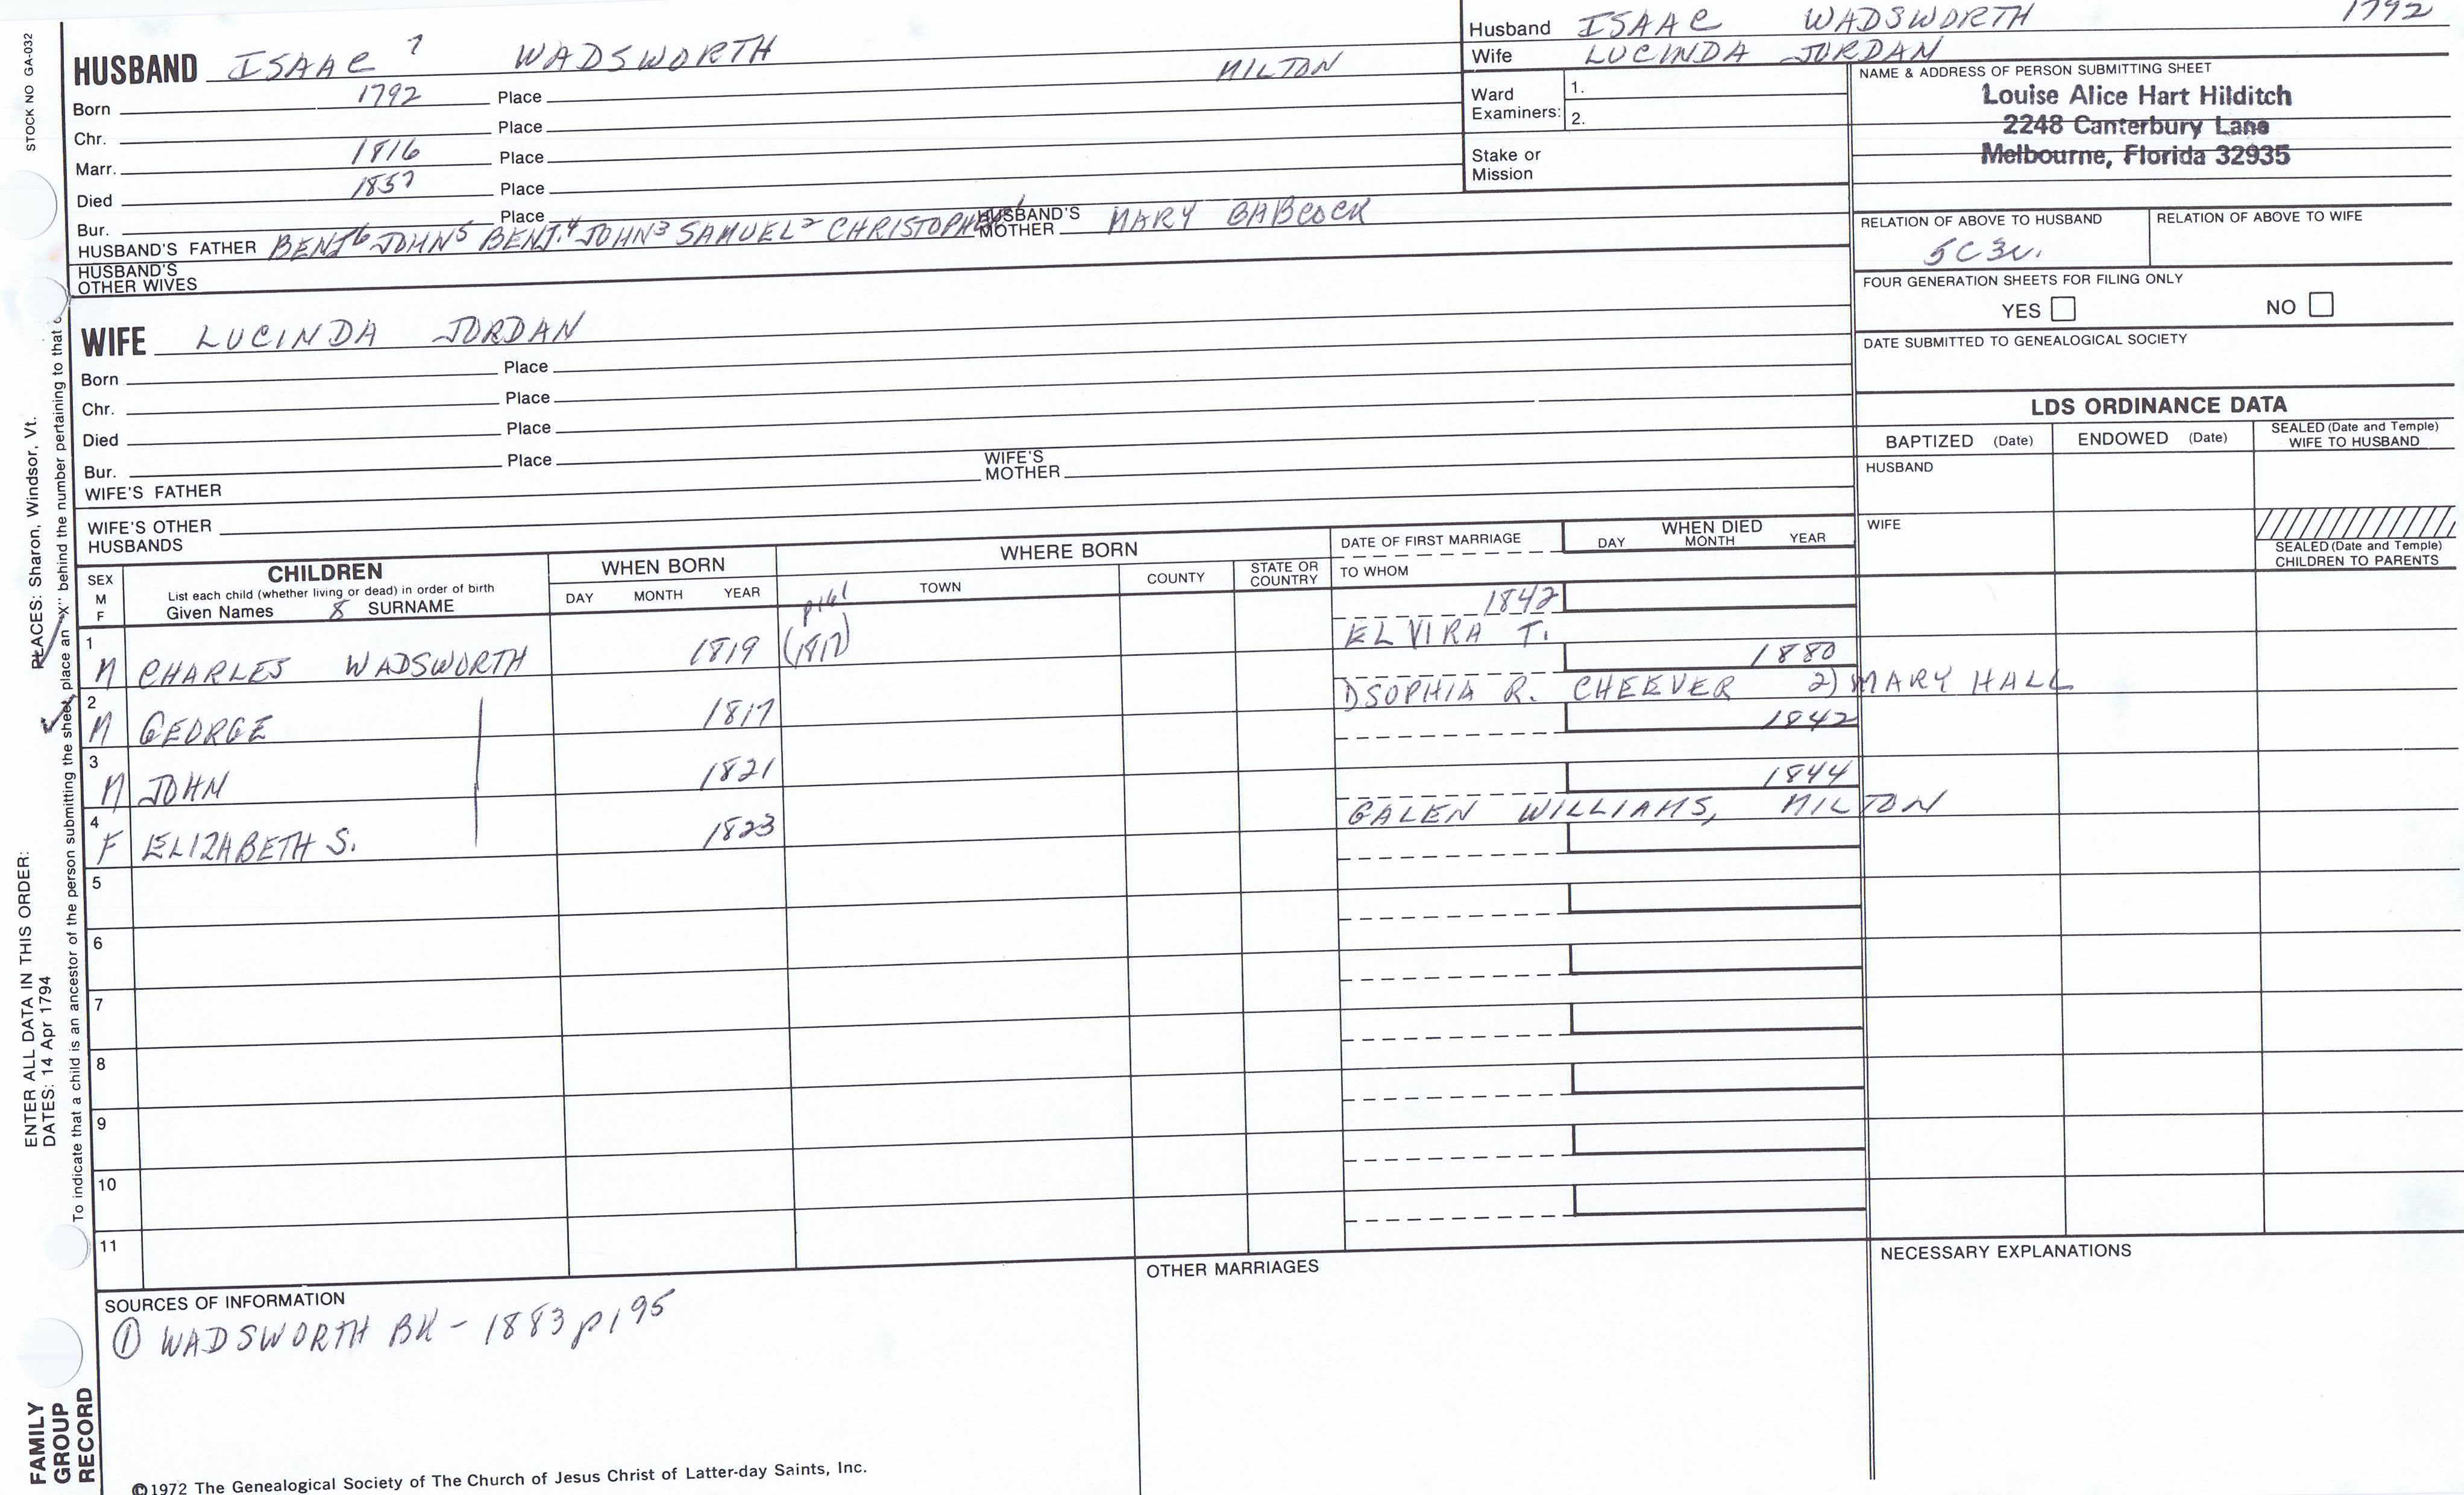 STOCK NO GA-032
HUSBAND ISAAC 7 WADSWORTH
Born 1792 Place MILTON
Chr. Place
Marr. 1816 Place
Died 1857 Place
Bur. Place
HUSBAND'S FATHER BENJ6 JOHN5 BENJ.4 JOHN3 SAMUEL2 CHRISTOPHER1 HUSBAND'S MOTHER MARY BABCOCK
HUSBAND'S OTHER WIVES
Husband ISAAC WADSWORTH 1792
Wife LUCINDA JORDAN
Ward Examiners: 1.
2.
Stake or Mission
NAME & ADDRESS OF PERSON SUBMITTING SHEET
Louise Alice Hart Hilditch
2248 Canterbury Lane
Melbourne, Florida 32935
RELATION OF ABOVE TO HUSBAND RELATION OF ABOVE TO WIFE
5C3r.
FOUR GENERATION SHEETS FOR FILING ONLY
YES NO
DATE SUBMITTED TO GENEALOGICAL SOCIETY
WIFE LUCINDA JORDAN
Born Place
Chr. Place
Died Place
Bur. Place
WIFE'S FATHER WIFE'S MOTHER
WIFE'S OTHER HUSBANDS
LDS ORDINANCE DATA
BAPTIZED (Date) ENDOWED (Date) SEALED (Date and Temple) WIFE TO HUSBAND
HUSBAND
WIFE
SEALED (Date and Temple) CHILDREN TO PARENTS
SEX M F
CHILDREN
List each child (whether living or dead) in order of birth
Given Names 8 SURNAME
WHEN BORN
DAY MONTH YEAR
WHERE BORN
TOWN COUNTY STATE OR COUNTRY
DATE OF FIRST MARRIAGE
TO WHOM
WHEN DIED
DAY MONTH YEAR
p161
1842
1 M CHARLES WADSWORTH 1819 (1817) ELVIRA T.
1880
2 M GEORGE 1817 1) SOPHIA R. CHEEVER 2) MARY HALL
1842
3 M JOHN 1821
1844
4 F ELIZABETH S. 1823 GALEN WILLIAMS, MILTON
5
6
7
8
9
10
11
SOURCES OF INFORMATION
① WADSWORTH BK - 1883 p195
OTHER MARRIAGES
NECESSARY EXPLANATIONS
©1972 The Genealogical Society of The Church of Jesus Christ of Latter-day Saints, Inc.
FAMILY
GROUP
RECORD
ENTER ALL DATA IN THIS ORDER:
DATES: 14 Apr 1794
PLACES: Sharon, Windsor, Vt.
To indicate that a child is an ancestor of the person submitting the sheet, place an "X" behind the number pertaining to that